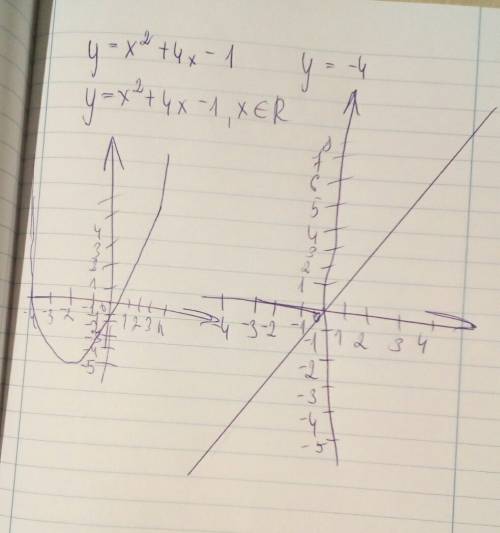 y = x² + 4x - 1
y = -4
y = x² + 4x - 1, x ∈ R
4
3
2
1
-4 -3 -2 -1 0 1 2 3 4
-1
-2
-3
-4
-5
8
7
6
5
4
3
2
1
-4 -3 -2 -1 0 1 2 3 4
-1
-2
-3
-4
-5